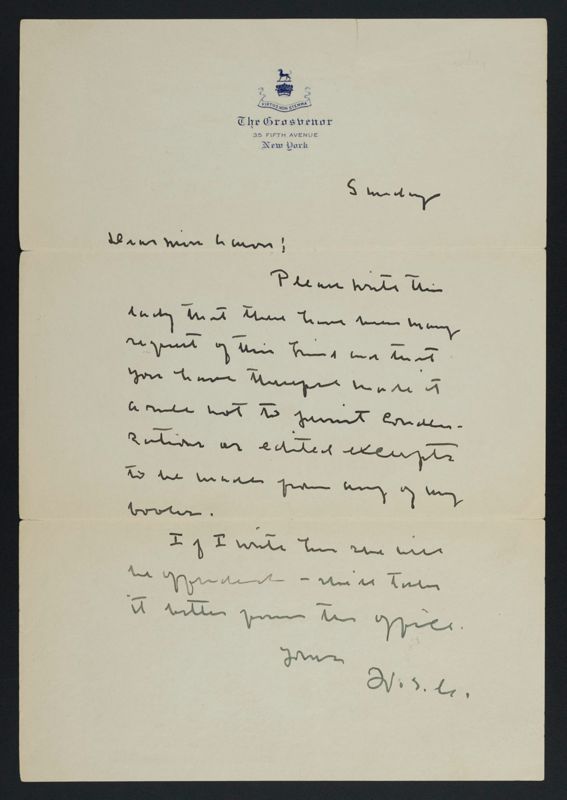 VIRTUS NON STEMMA
The Grosvenor
35 FIFTH AVENUE
New York
Sunday
Dear Miss
Please write this
lady that there have been many
request of this kind and that
you have therefore made it
a rule not to permit conden-
zations or edited excerpts
to be made from any of my
books.
If I write her she will
be offended - she'll take
it better from the office.
Yours
W.S.C.